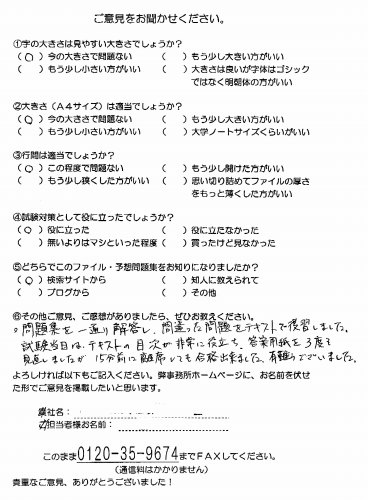 ご意見をお聞かせください。
①字の大きさは見やすい大きさでしょうか？
（○）今の大きさで問題ない （ ）もう少し大きい方がいい
（ ）もう少し小さい方がいい （ ）大きさは良いが字体はゴシック
ではなく明朝体の方がいい
②大きさ（A4サイズ）は適当でしょうか？
（○）今の大きさで問題ない （ ）もう少し大きい方がいい
（ ）もう少し小さい方がいい （ ）大学ノートサイズくらいがいい
③行間は適当でしょうか？
（○）この程度で問題ない （ ）もう少し開けた方がいい
（ ）もう少し狭くした方がいい （ ）思い切り詰めてファイルの厚さ
をもっと薄くした方がいい
④試験対策として役に立ったでしょうか？
（○）役に立った （ ）役に立たなかった
（ ）無いよりはマシといった程度 （ ）買ったけど見なかった
⑤どちらでこのファイル・予想問題集をお知りになりましたか？
（○）検索サイトから （ ）知人に教えられて
（ ）ブログから （ ）その他
⑥その他ご意見、ご感想がありましたら、ぜひお教えください。
問題集を一通り解答し、間違った問題をテキストで復習しました。
試験当日は、テキストの目次が非常に役立ち、答案用紙を3度も
見直しましたが15分前に離席しても合格出来ました、有難うございました。
よろしければ以下もご記入ください。弊事務所ホームページに、お名前を伏せ
た形でご意見を掲載したいと思います。
貴社名：
ご担当者様お名前：
このまま0120-35-9674までFAXしてください。
（通信料はかかりません）
貴重なご意見、ありがとうございました！